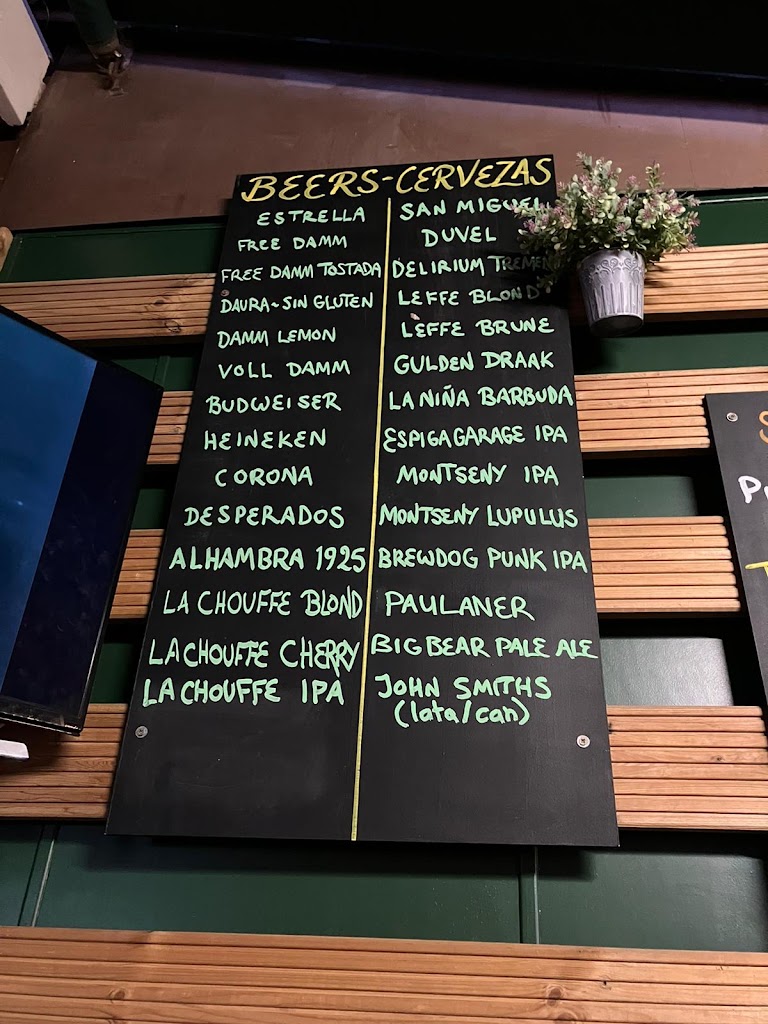 BEERS-CERVEZAS
ESTRELLA
FREE DAMM
FREE DAMM TOSTADA
DAURA~SIN GLUTEN
DAMM LEMON
VOLL DAMM
BUDWEISER
HEINEKEN
CORONA
DESPERADOS
ALHAMBRA 1925
LA CHOUFFE BLOND
LA CHOUFFE CHERRY
LA CHOUFFE IPA
SAN MIGUEL
DUVEL
DELIRIUM
LEFFE BLOND
LEFFE BRUNE
GULDEN DRAAK
LA NIÑA BARBUDA
ESPIGA GARAGE IPA
MONTSENY IPA
MONTSENY LUPULUS
BREWDOG PUNK IPA
PAULANER
BIG BEAR PALE ALE
JOHN SMITHS
(lata/can)